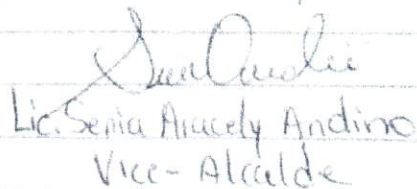 Lic. Senia Aracely Andino
Vice-Alcalde